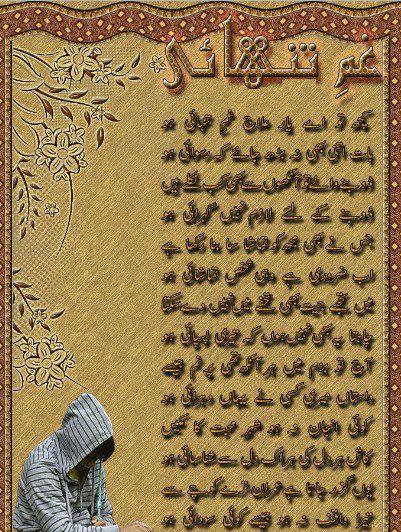 غمِ تنہائی
کچھ تو اے یار علاجِ غمِ تنہائی ہو
بات اتنی بھی نہ بڑھ جائے کہ رسوائی ہو
ڈوبنے والے تو آنکھوں سے بھی کب نکلے ہیں
ڈوبنے کے لئے لازم نہیں گہرائی ہو
جس نے بھی مجھ کو تماشا سا بنا رکھا ہے
اب ضروری ہے وہی شخص تماشائی ہو
میں تجھے جیت بھی تحفے میں نہیں دے سکتا
چاہتا یہ بھی نہیں ہوں کہ تیری پسپائی ہو
آج تو بزم میں ہر آنکھ تھی پرنم جیسے
داستاں میری کسی نے یہاں دہرائی ہو
کوئی انجان نہ ہو شہرِ محبت کا مکیں
کاش ہر دل کی ہر اک دل سے شناسائی ہو
یوں گزر جاتا ہے ترے کوچے سے
تیرا واقف نہ ہو جیسے کوئی سودائی ہو